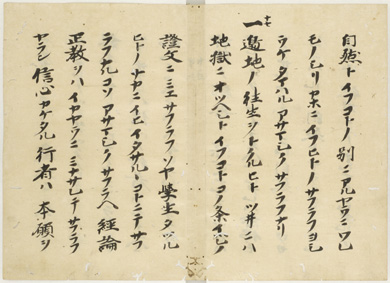 自然トイフコトノ別ニアルヤウニワレ
モノシリカホニイフヒトノサフラフヨシ
ウケタマハルアサマシクサフラフナリ
一邉地ノ往生ヲトクルヒトツ井ニハ
地獄ニオツヘシトイフコトコノ条イツレノ
證文ニミエサフラフソヤ學生タツル
ヒトノナカニイヒイタサルヽコトニテサフ
ラフナルコソアサマシクサフラヘ経論
正教ヲハイカヤウニミナサレテサフラフ
ヤラン信心カケタル行者ハ本願ヲ